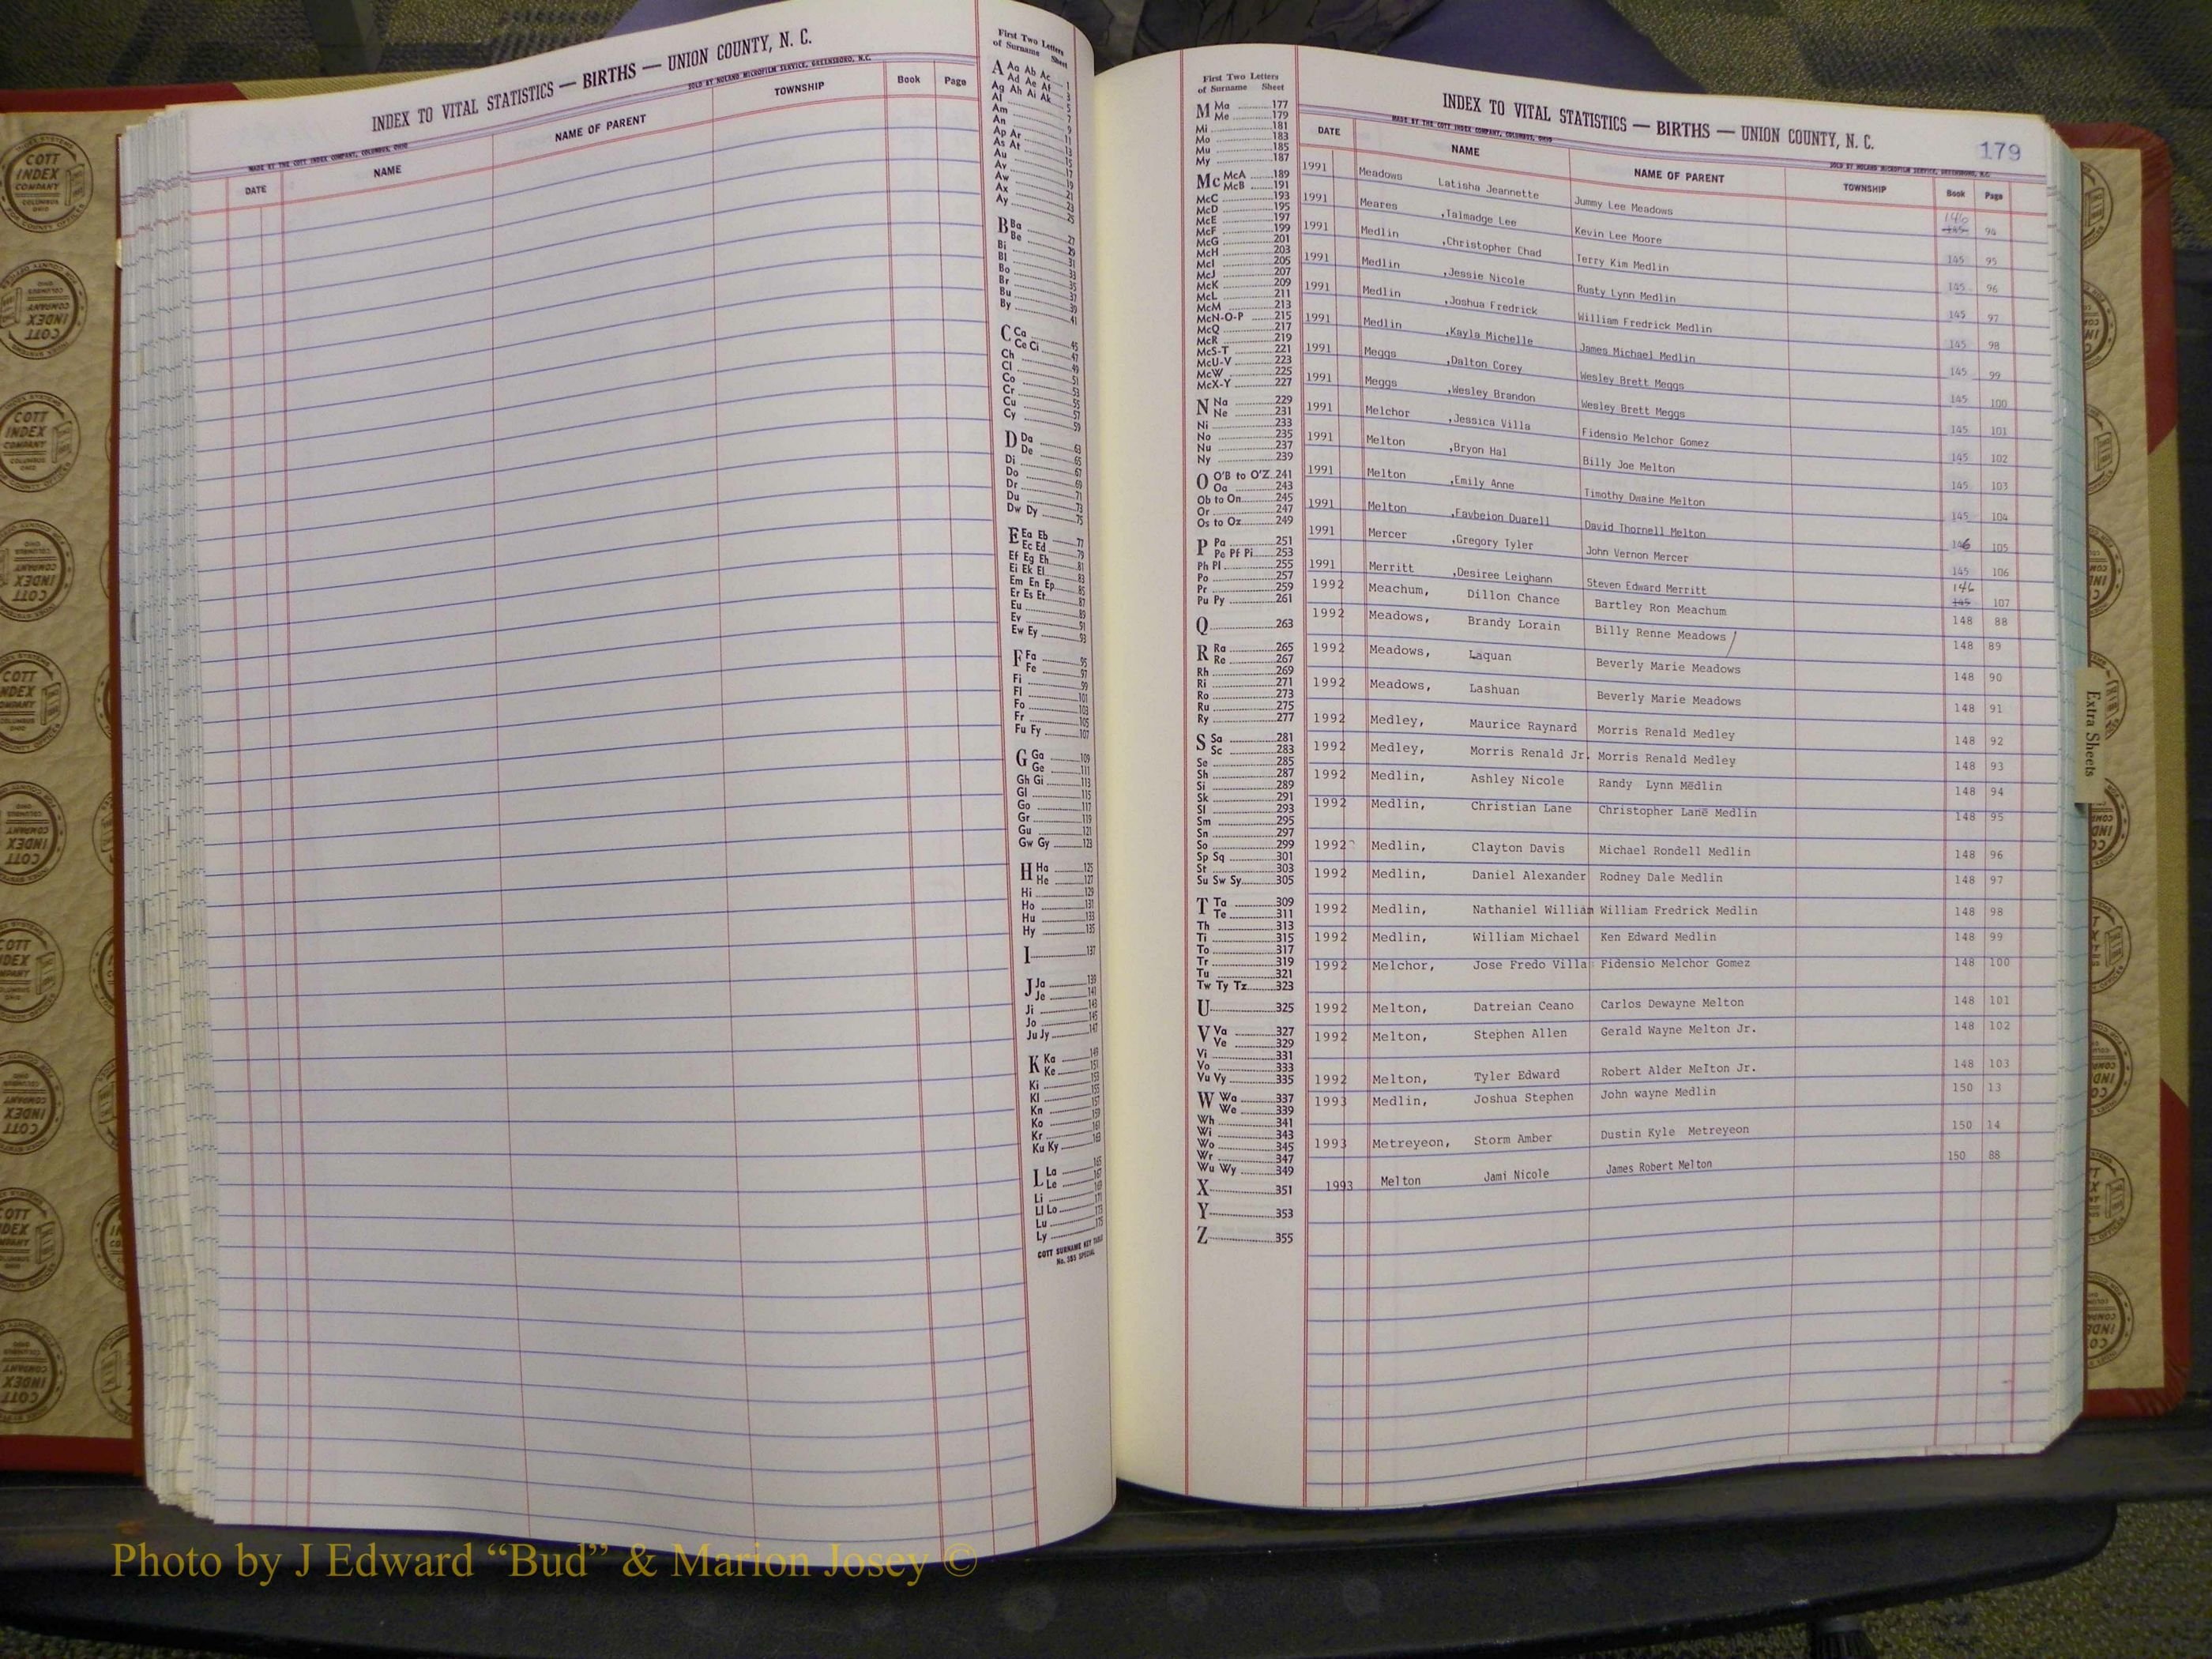 INDEX TO VITAL STATISTICS — BIRTHS — UNION COUNTY, N. C.
MADE BY THE COTT INDEX COMPANY, COLUMBUS, OHIO
SOLD BY NOLAND MICROFILM SERVICE, GREENSBORO, N.C.
DATE NAME NAME OF PARENT TOWNSHIP Book Page
First Two Letters
of Surname Sheet
A Aa Ab Ac 1
Ad Ae Af 3
Ag Ah Ai Ak 5
Al 7
Am 9
An 11
Ap Ar 13
As At 15
Au 17
Av 19
Aw 21
Ax 23
Ay 25
B Ba 27
Be 29
Bi 31
Bl 33
Bo 35
Br 37
Bu 39
By 41
C Ca 45
Ce Ci 47
Ch 49
Cl 51
Co 53
Cr 55
Cu 57
Cy 59
D Da 63
De 65
Di 67
Do 69
Dr 71
Du 73
Dw Dy 75
E Ea Eb 77
Ec Ed 79
Ef Eg Eh 81
Ei Ek El 83
Em En Ep 85
Er Es Et 87
Eu 89
Ev 91
Ew Ey 93
F Fa 95
Fe 97
Fi 99
Fl 101
Fo 103
Fr 105
Fu Fy 107
G Ga 109
Ge 111
Gh Gi 113
Gl 115
Go 117
Gr 119
Gu 121
Gw Gy 123
H Ha 125
He 127
Hi 129
Ho 131
Hu 133
Hy 135
I 137
J Ja 139
Je 141
Ji 143
Jo 145
Ju Jy 147
K Ka 149
Ke 151
Ki 153
Kl 155
Kn 157
Ko 159
Kr 161
Ku Ky 163
L La 165
Le 167
Li 171
Ll Lo 173
Lu 175
Ly
COTT SURNAME KEY TABLE
No. 585 SPECIAL
First Two Letters
of Surname Sheet
M Ma 177
Me 179
Mi 181
Mo 183
Mu 185
My 187
Mc McA 189
McB 191
McC 193
McD 195
McE 197
McF 199
McG 201
McH 203
McI 205
McJ 207
McK 209
McL 211
McM 213
McN-O-P 215
McQ 217
McR 219
McS-T 221
McU-V 223
McW 225
McX-Y 227
N Na 229
Ne 231
Ni 233
No 235
Nu 237
Ny 239
O O'B to O'Z 241
Oa 243
Ob to On 245
Or 247
Os to Oz 249
P Pa 251
Pe Pf Pi 253
Ph Pl 255
Po 257
Pr 259
Pu Py 261
Q 263
R Ra 265
Re 267
Rh 269
Ri 271
Ro 273
Ru 275
Ry 277
S Sa 281
Sc 283
Se 285
Sh 287
Si 289
Sk 291
Sl 293
Sm 295
Sn 297
So 299
Sp Sq 301
St 303
Su Sw Sy 305
T Ta 309
Te 311
Th 313
Ti 315
To 317
Tr 319
Tu 321
Tw Ty Tz 323
U 325
V Va 327
Ve 329
Vi 331
Vo 333
Vu Vy 335
W Wa 337
We 339
Wh 341
Wi 343
Wo 345
Wr 347
Wu Wy 349
X 351
Y 353
Z 355
INDEX TO VITAL STATISTICS — BIRTHS — UNION COUNTY, N. C. 179
MADE BY THE COTT INDEX COMPANY, COLUMBUS, OHIO
SOLD BY NOLAND MICROFILM SERVICE, GREENSBORO, N.C.
DATE NAME NAME OF PARENT TOWNSHIP Book Page
1991 Meadows Latisha Jeannette Jummy Lee Meadows 146 145 94
1991 Meares ,Talmadge Lee Kevin Lee Moore 145 95
1991 Medlin ,Christopher Chad Terry Kim Medlin 145 96
1991 Medlin ,Jessie Nicole Rusty Lynn Medlin 145 97
1991 Medlin ,Joshua Fredrick William Fredrick Medlin 145 98
1991 Medlin ,Kayla Michelle James Michael Medlin 145 99
1991 Meggs ,Dalton Corey Wesley Brett Meggs 145 100
1991 Meggs ,Wesley Brandon Wesley Brett Meggs 145 101
1991 Melchor ,Jessica Villa Fidensio Melchor Gomez 145 102
1991 Melton ,Bryon Hal Billy Joe Melton 145 103
1991 Melton ,Emily Anne Timothy Dwaine Melton 145 104
1991 Melton ,Favbeion Duarell David Thornell Melton 146 105
1991 Mercer ,Gregory Tyler John Vernon Mercer 145 106
1991 Merritt ,Desiree Leighann Steven Edward Merritt 146 145 107
1992 Meachum, Dillon Chance Bartley Ron Meachum 148 88
1992 Meadows, Brandy Lorain Billy Renne Meadows 148 89
1992 Meadows, Laquan Beverly Marie Meadows 148 90
1992 Meadows, Lashuan Beverly Marie Meadows 148 91
1992 Medley, Maurice Raynard Morris Renald Medley 148 92
1992 Medley, Morris Renald Jr. Morris Renald Medley 148 93
1992 Medlin, Ashley Nicole Randy Lynn Medlin 148 94
1992 Medlin, Christian Lane Christopher Lane Medlin 148 95
1992 Medlin, Clayton Davis Michael Rondell Medlin 148 96
1992 Medlin, Daniel Alexander Rodney Dale Medlin 148 97
1992 Medlin, Nathaniel William William Fredrick Medlin 148 98
1992 Medlin, William Michael Ken Edward Medlin 148 99
1992 Melchor, Jose Fredo Villa Fidensio Melchor Gomez 148 100
1992 Melton, Datreian Ceano Carlos Dewayne Melton 148 101
1992 Melton, Stephen Allen Gerald Wayne Melton Jr. 148 102
1992 Melton, Tyler Edward Robert Alder Melton Jr. 148 103
1993 Medlin, Joshua Stephen John wayne Medlin 150 13
1993 Metreyeon, Storm Amber Dustin Kyle Metreyeon 150 14
1993 Melton Jami Nicole James Robert Melton 150 88
Extra Sheets
COTT INDEX COMPANY COLUMBUS OHIO
Photo by J Edward “Bud” & Marion Josey ©